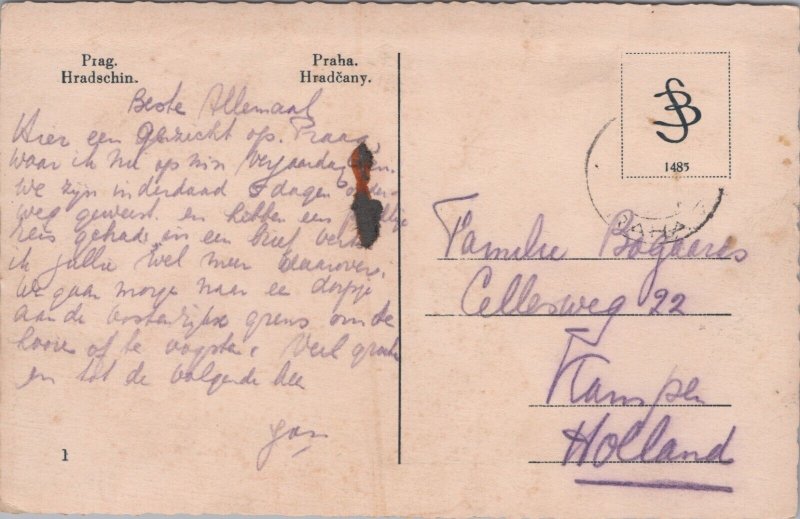 Prag.
Hradschin.
Praha.
Hradčany.
Beste Allemaal
Hier een gezicht op Praag
waar ik nu op mijn verjaardag ben.
We zijn inderdaad 5 dagen onder-
weg geweest en hebben een
reis gehad, in een brief
ik jullie wel meer daarover.
We gaan morgen naar een dorpje
aan de Oostenrijkse grens om te
hooien of te oogsten. Veel groeten
en tot de volgende keer
Jan
1
JB
1485
PRAHA
Familie Bogaares
Cellesweg 22
Kampen
Holland